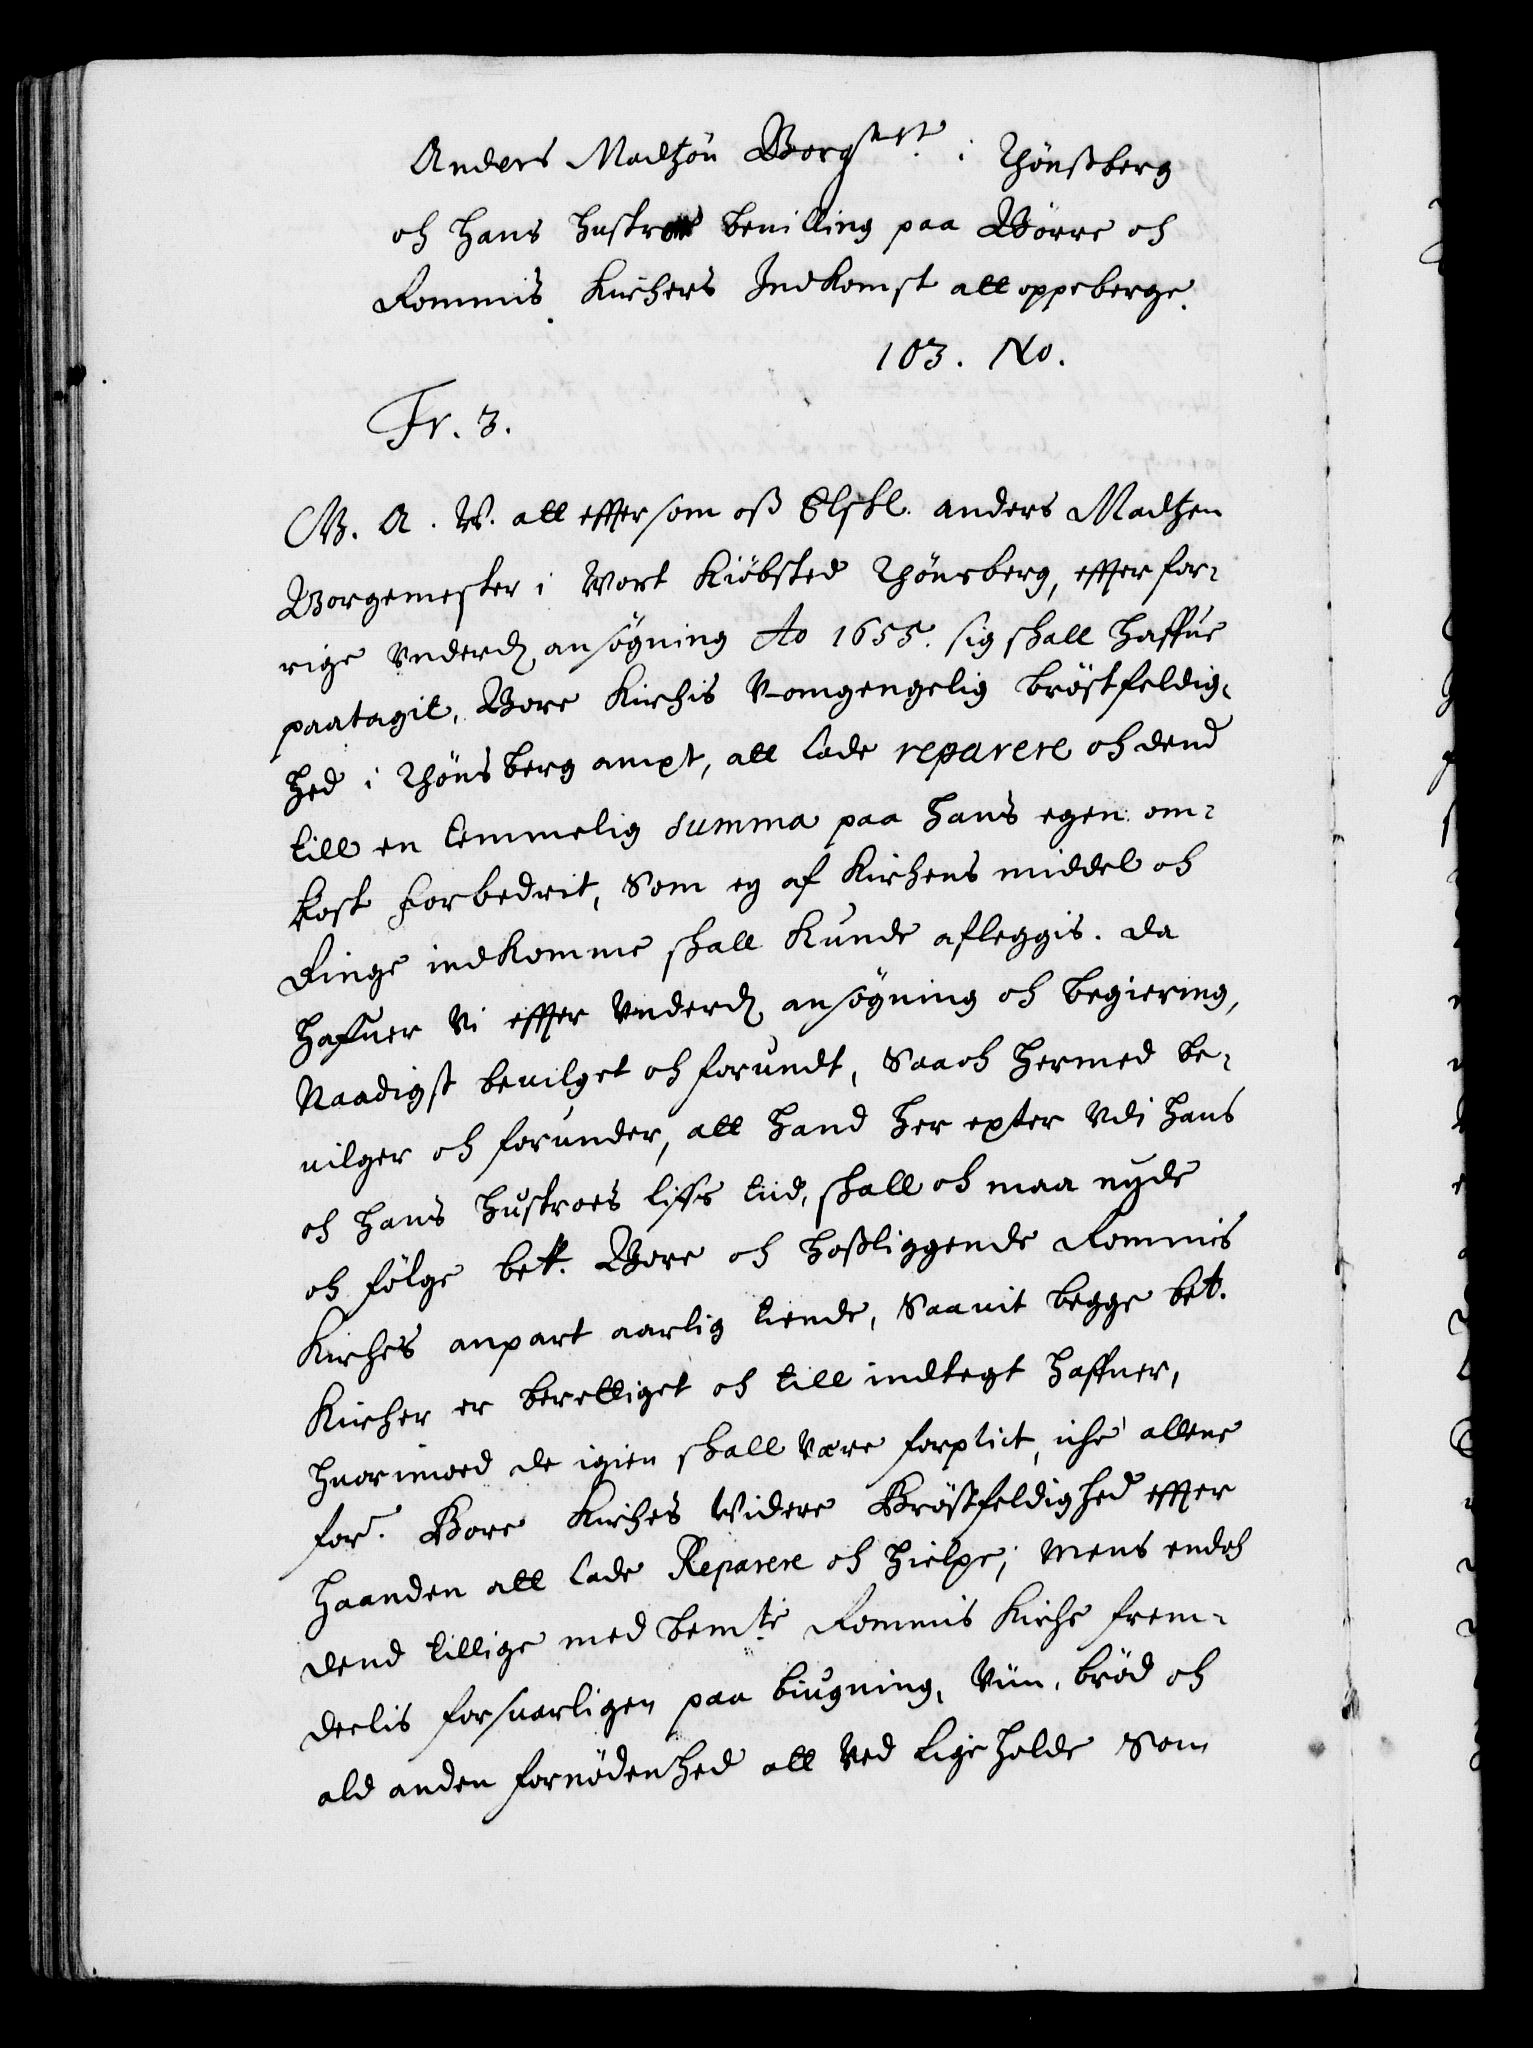 Anders Madtzøn Borgmest. i Thønßberg
och hans hustroes beuilling paa Børre och
Rommis Kirchers Indkomst att oppeberge.
103. No.
Fr. 3.
G. A. W. att effter som oß Elskl. anders Madtzen
Borgemester i Wort Kiøbsted Thønsberg, effter for-
rige Vnderd. ansøgning Ao 1655. sig skall haffue
paatagit, Bore Kirchis V-omgengelig brøstfeldig-
hed i Thønsberg ampt, att lade reparere och dend
till en temmelig summa paa hans egen om-
kost forbedrit, som ey af Kirchens middel och
Ringe indkomme skall kunde afleggis. da
haffuer Vi effter Vnderd. ansøgning och begiering,
Naadigst beuilget och forundt, Saa och hermed be-
uilger och forunder, att hand her epter Vdi hans
och hans hustroes liffs tiid, skall och maa nyde
och følge bet. Bore och hosliggende Rommis
Kirches anpart aarlig tiende, Saauit begge bet.
Kircher er berettiget och till indtegt haffuer,
huorimoed de igien skall være forplict, iche allene
for. Bore Kirches Widere Brøstfeldighed effter
haanden att lade Reparere och hielpe; Mens endoch
dend tillige med bemte Rommis Kirche frem-
deelis forsuarligen paa biugning, Viin, brød och
ald anden fornødenhed att Ved lige holde som